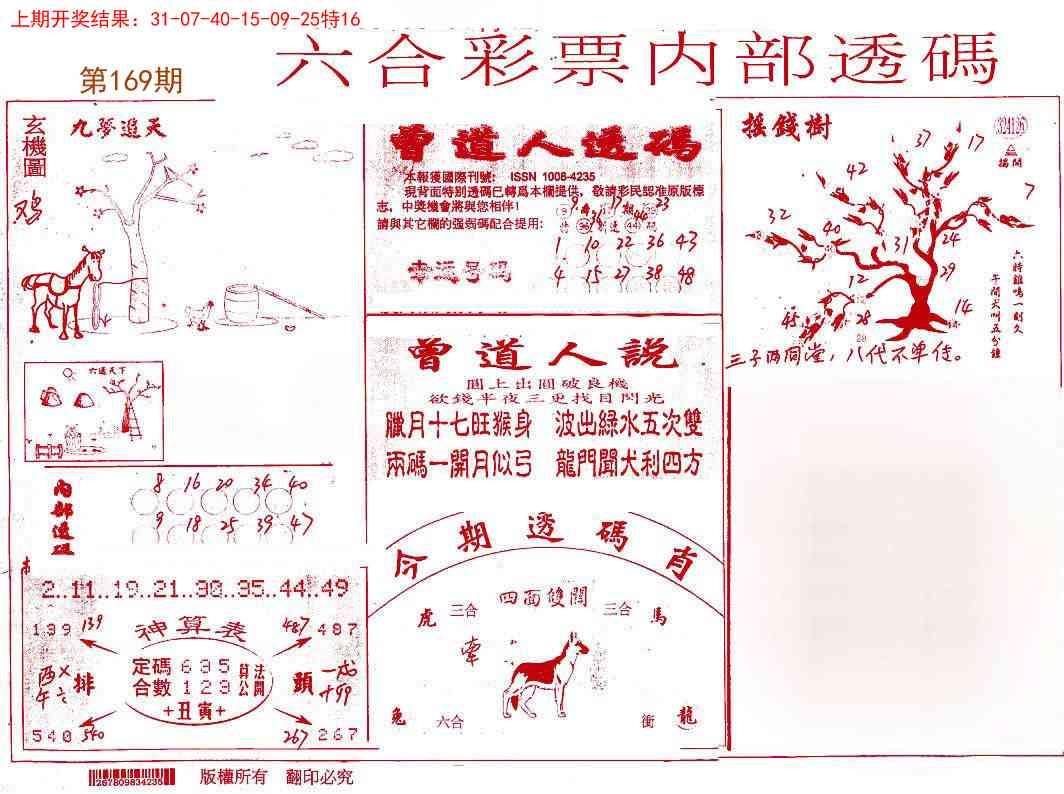 上期开奖结果：31-07-40-15-09-25特16
六合彩票内部透碼
第169期
玄機圖
九夢追天
鸡
六通天下
内部透碼
8 16 20 34 40
9 18 25 39 47
2..11..19..21..30..35..44..49
139 139
神算表
487 487
定碼 635
合數 123
算公
法開
+丑寅+
排
頭
540 540
267 267
曾道人透码
本報獲國際刊號： ISSN 1008-4235
現背面特别透碼已轉爲本欄提供，敬請彩民認准原版標
志，中獎機會將與您相伴！
請與其它欄的强弱碼配合提用：
幸运号码
1 10 22 36 43
4 15 27 38 48
曾道人說
圓上出圓破良機
欲錢半夜三更找目閃光
臘月十七旺猴身 波出綠水五次雙
兩碼一開月似弓 龍門聞犬利四方
今期透碼肖
四面雙開
虎 三合
三合 馬
牽
兔 六合
衝 龍
摇錢樹
324105
37
17
42
7
32
40
31
24
29
12
14
45
28
六時雞鳴一刻久
午間犬叫五分鐘
三子两同堂，八代不单徒。
267809834235
版權所有 翻印必究